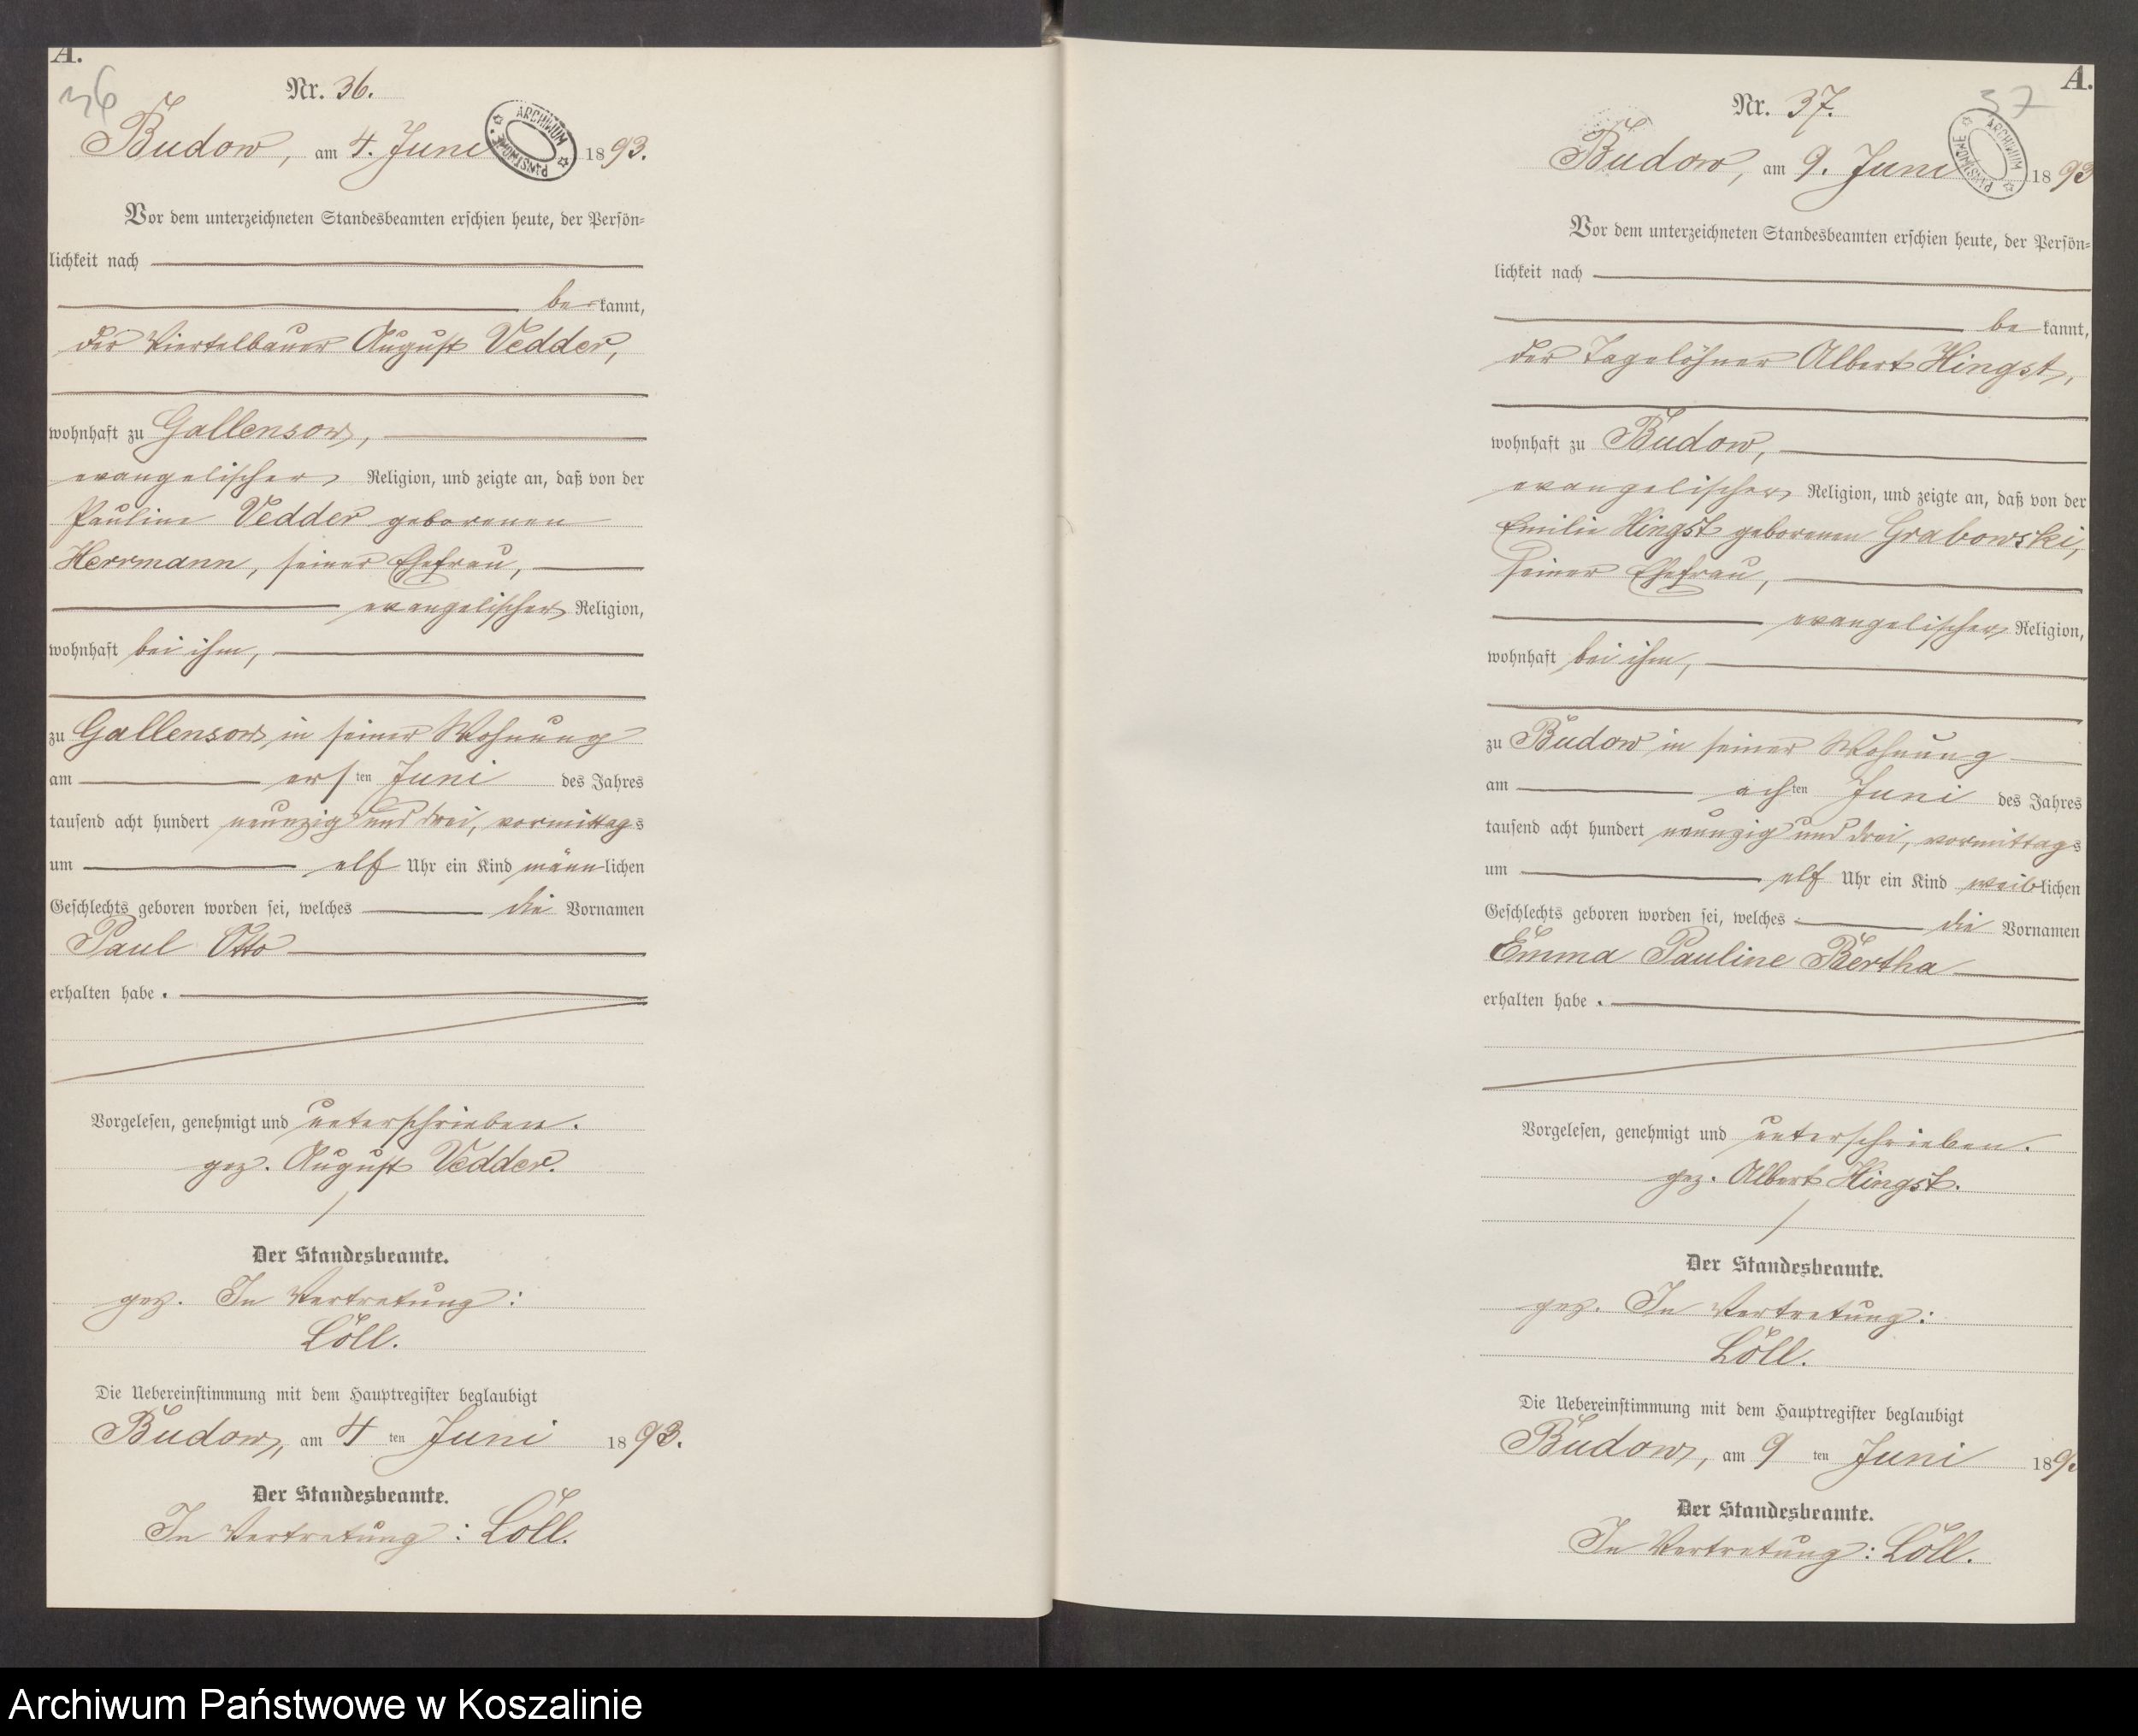 A.
36
Nr. 36.
Budow, am 4. Juni 1893.
ARCHIWUM PAŃSTWOWE
Vor dem unterzeichneten Standesbeamten erschien heute, der Persön-
lichkeit nach
be kannt,
der Viertelbauer August Vedder,
wohnhaft zu Gallensow,
evangelischer Religion, und zeigte an, daß von der
Pauline Vedder geborenen
Herrmann, seiner Ehefrau,
evangelischer Religion,
wohnhaft bei ihm,
zu Gallensow in seiner Wohnung
am ersten Juni des Jahres
tausend acht hundert neunzig und drei, vormittags
um elf Uhr ein Kind männlichen
Geschlechts geboren worden sei, welches die Vornamen
Paul Otto
erhalten habe.
Vorgelesen, genehmigt und unterschrieben.
gez. August Vedder.
Der Standesbeamte.
gez. In Vertretung:
Löll.
Die Uebereinstimmung mit dem Hauptregister beglaubigt
Budow, am 4 ten Juni 1893.
Der Standesbeamte.
In Vertretung: Löll.
A.
37
Nr. 37.
Budow, am 9. Juni 1893
ARCHIWUM PAŃSTWOWE
Vor dem unterzeichneten Standesbeamten erschien heute, der Persön-
lichkeit nach
be kannt,
der Tagelöhner Albert Hingst,
wohnhaft zu Budow,
evangelischer Religion, und zeigte an, daß von der
Emilie Hingst geborenen Grabowski,
seiner Ehefrau,
evangelischer Religion,
wohnhaft bei ihm,
zu Budow in seiner Wohnung
am achten Juni des Jahres
tausend acht hundert neunzig und drei, vormittags
um elf Uhr ein Kind weiblichen
Geschlechts geboren worden sei, welches die Vornamen
Emma Pauline Bertha
erhalten habe.
Vorgelesen, genehmigt und unterschrieben.
gez. Albert Hingst.
Der Standesbeamte.
gez. In Vertretung:
Löll.
Die Uebereinstimmung mit dem Hauptregister beglaubigt
Budow, am 9 ten Juni 189
Der Standesbeamte.
In Vertretung: Löll.
Archiwum Państwowe w Koszalinie